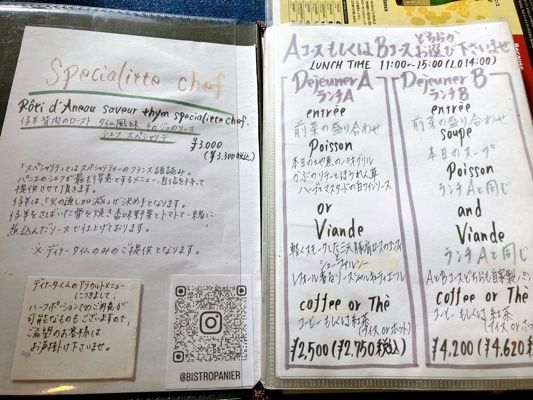 Specialitte chef
Rôti d'Aneau saveur thym specialitte chef.
仔羊背肉のロースト タイム風味
シェフ スペシャリテ
¥3.000
(¥3.300税込)
「スペシャリテ」とはスペシャリティーのフランス語読み。
提供させて頂きます。
仔羊は、「火の通し加減」が決め手となります。
仔羊をさばいた骨を下焼き香味野菜とトマトと一緒に
煮込んだソースで仕上げております。
※ディナータイムのみのご提供となります。
ディナータイムのアラカルトメニュー
につきまして、
ハーフポーションでのご用意が
可能なものもございますので、
ご希望のお客様は
お声掛け下さいませ。
@BISTROPANIER
Aコースもしくは Bコース どちらか
お選び下さいませ
LUNCH TIME 11:00~15:00 (L.O14:00)
Dejeuner A
ランチA
entrée
前菜の盛り合わせ
Poisson
かぶのリゾットとほうれん草
ハーブとマスタードの白ワインソース
or
Viande
coffee or Thè
コーヒー もしくは 紅茶
(アイス or ホット)
¥2,500 (¥2.750税込)
Dejeuner B
ランチB
entrée
前菜の盛り合わせ
soupe
本日のスープ
Poisson
ランチAと同じ
and
Viande
ランチAと同じ
AとBコースどちらも自家製パン
coffee or Thè
コーヒー もしくは 紅茶
(アイス or ホット)
¥4.200 (¥4.620税込